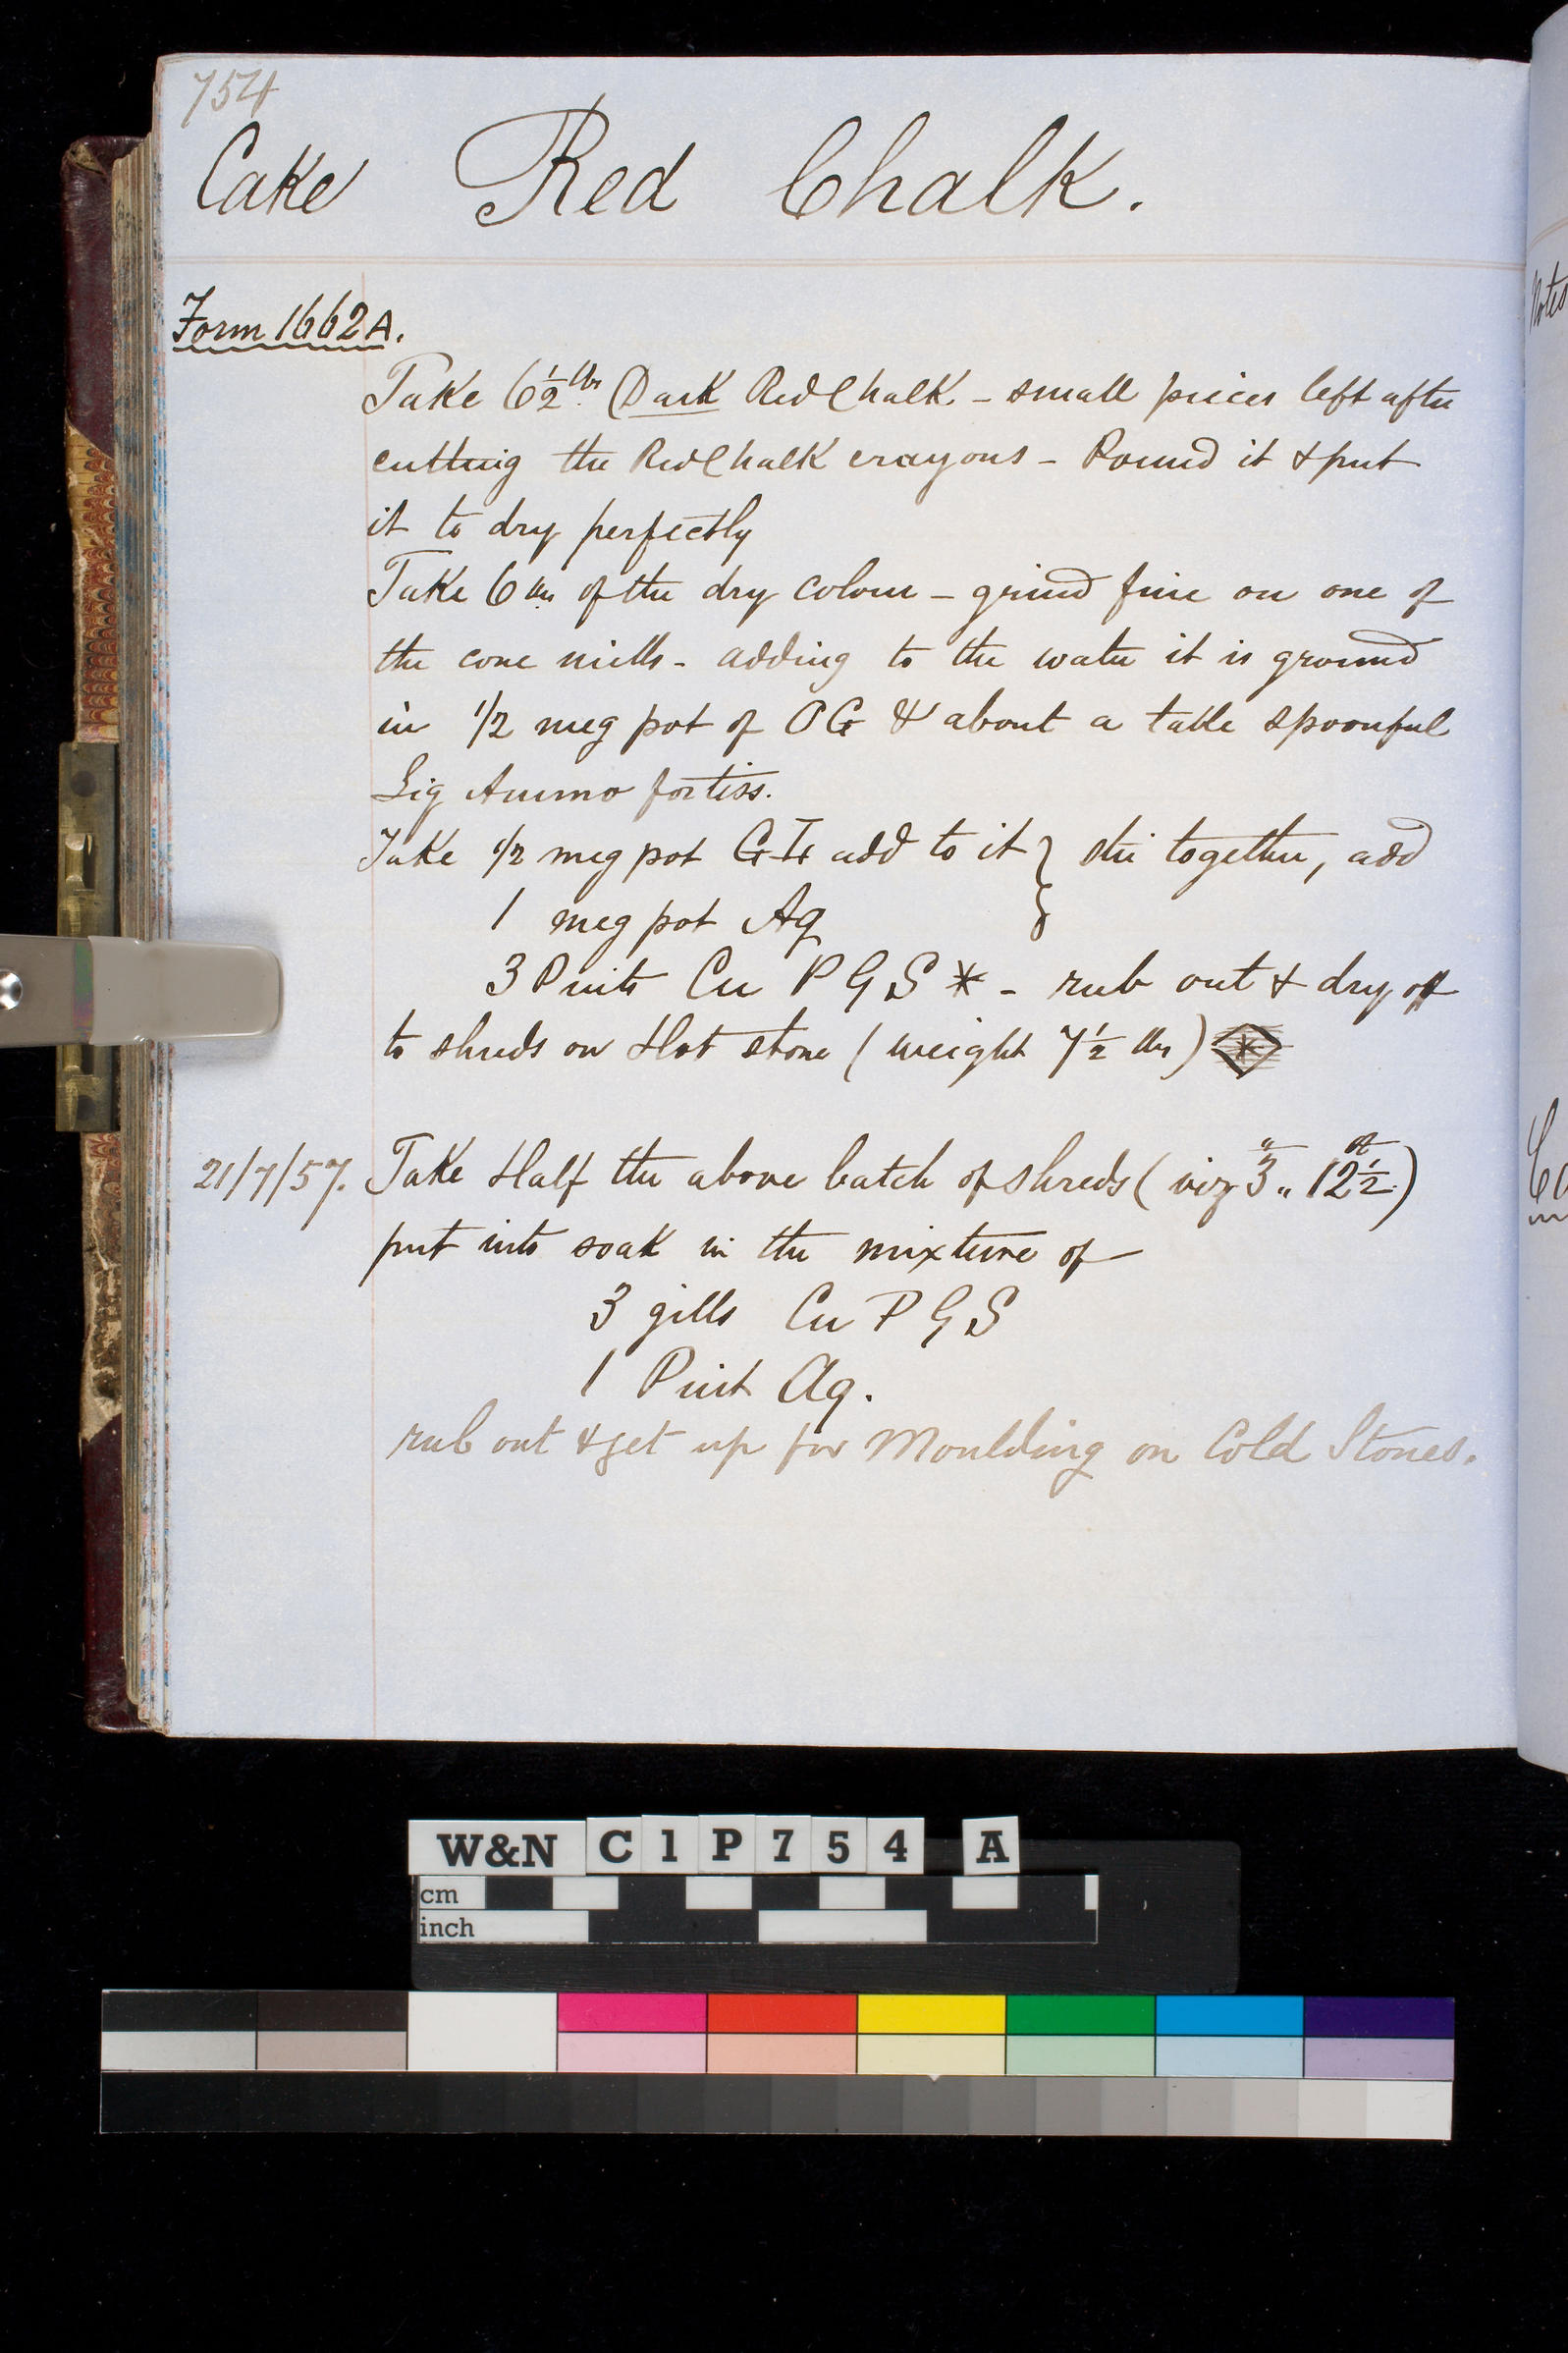 754
Cake Red Chalk.
Form 1662A.
Take 6½ lbs (Dark Red Chalk. - small pieces left after
cutting the Red Chalk crayons - Pound it & put
it to dry perfectly
Take 6 lbs of the dry colour - grind fine on one of
the cone mills - adding to the water it is ground
in 1/2 meg pot of OG & about a table spoonful
Liq Ammo fortiss.
Take 1/2 meg pot add to it } stir together, add
1 meg pot Aq
3 Pints Cu P G S * - rub out & dry off
to shreds on Hot stone (weight 7½ lbs) *
21/7/57. Take Half the above batch of shreds (viz 3 „ 12½)
put into soak in the mixture of
3 gills Cu P G S
1 Pint Aq.
rub out & get up for Moulding on Cold Stones.
Notes
W&N C1P754 A
cm
inch